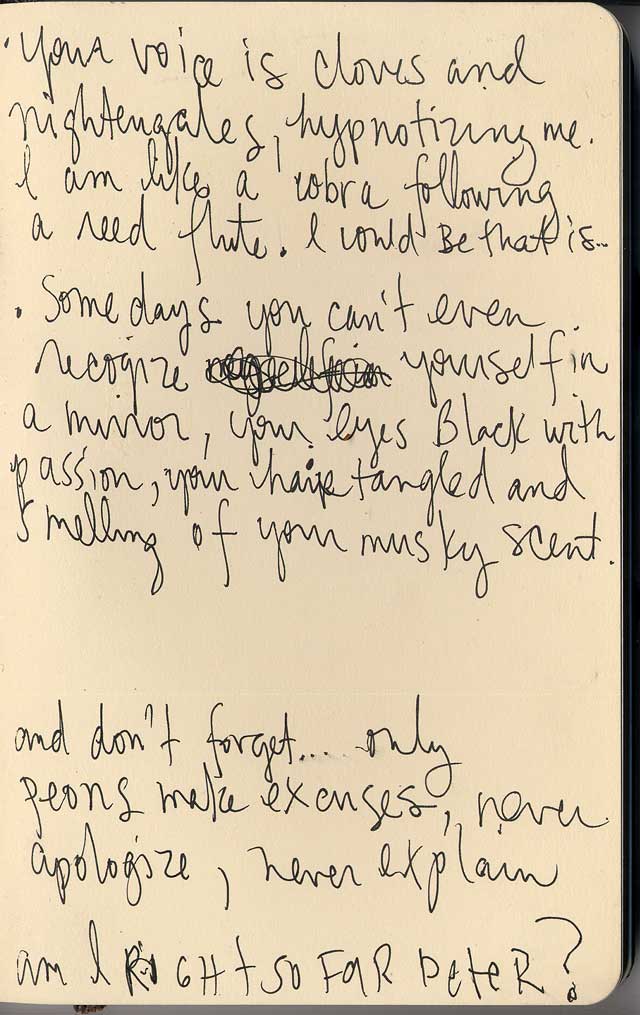 · Your voice is cloves and
nightengales, hypnotizing me.
I am like a cobra following
a reed flute. I could Be that is...
. Some days you can't even
recogize yourself in
a mirror, your eyes Black with
passion, your hair tangled and
smelling of your musky scent.
and don't forget.... only
peons make excuses, never
apologize, never explain
am I RiGHt so FAR PeteR?